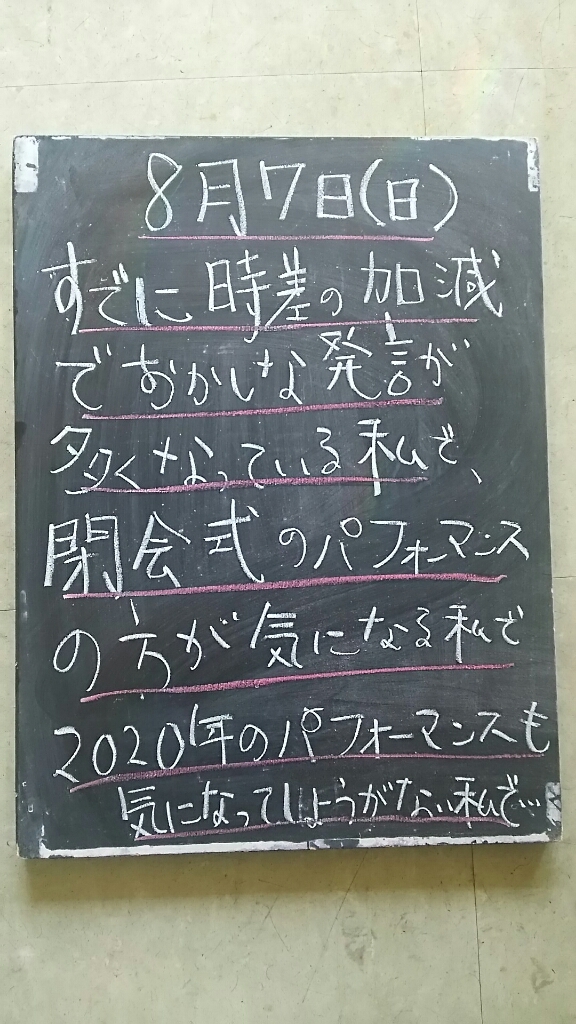 8月7日(日)
すでに時差の加減
でおかしな発言が
多くなっている私で、
閉会式のパフォーマンス
の方が気になる私で
2020年のパフォーマンスも
気になってしょうがない私で…